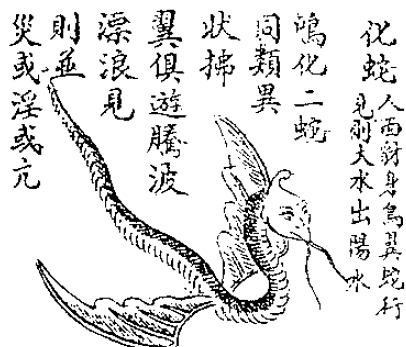 化蛇
人面豺身鳥翼蛇行
見則大水出陽水
鳴化二蛇
同類異
狀拂
翼俱遊騰波
漂浪見
則並
災或淫或亢